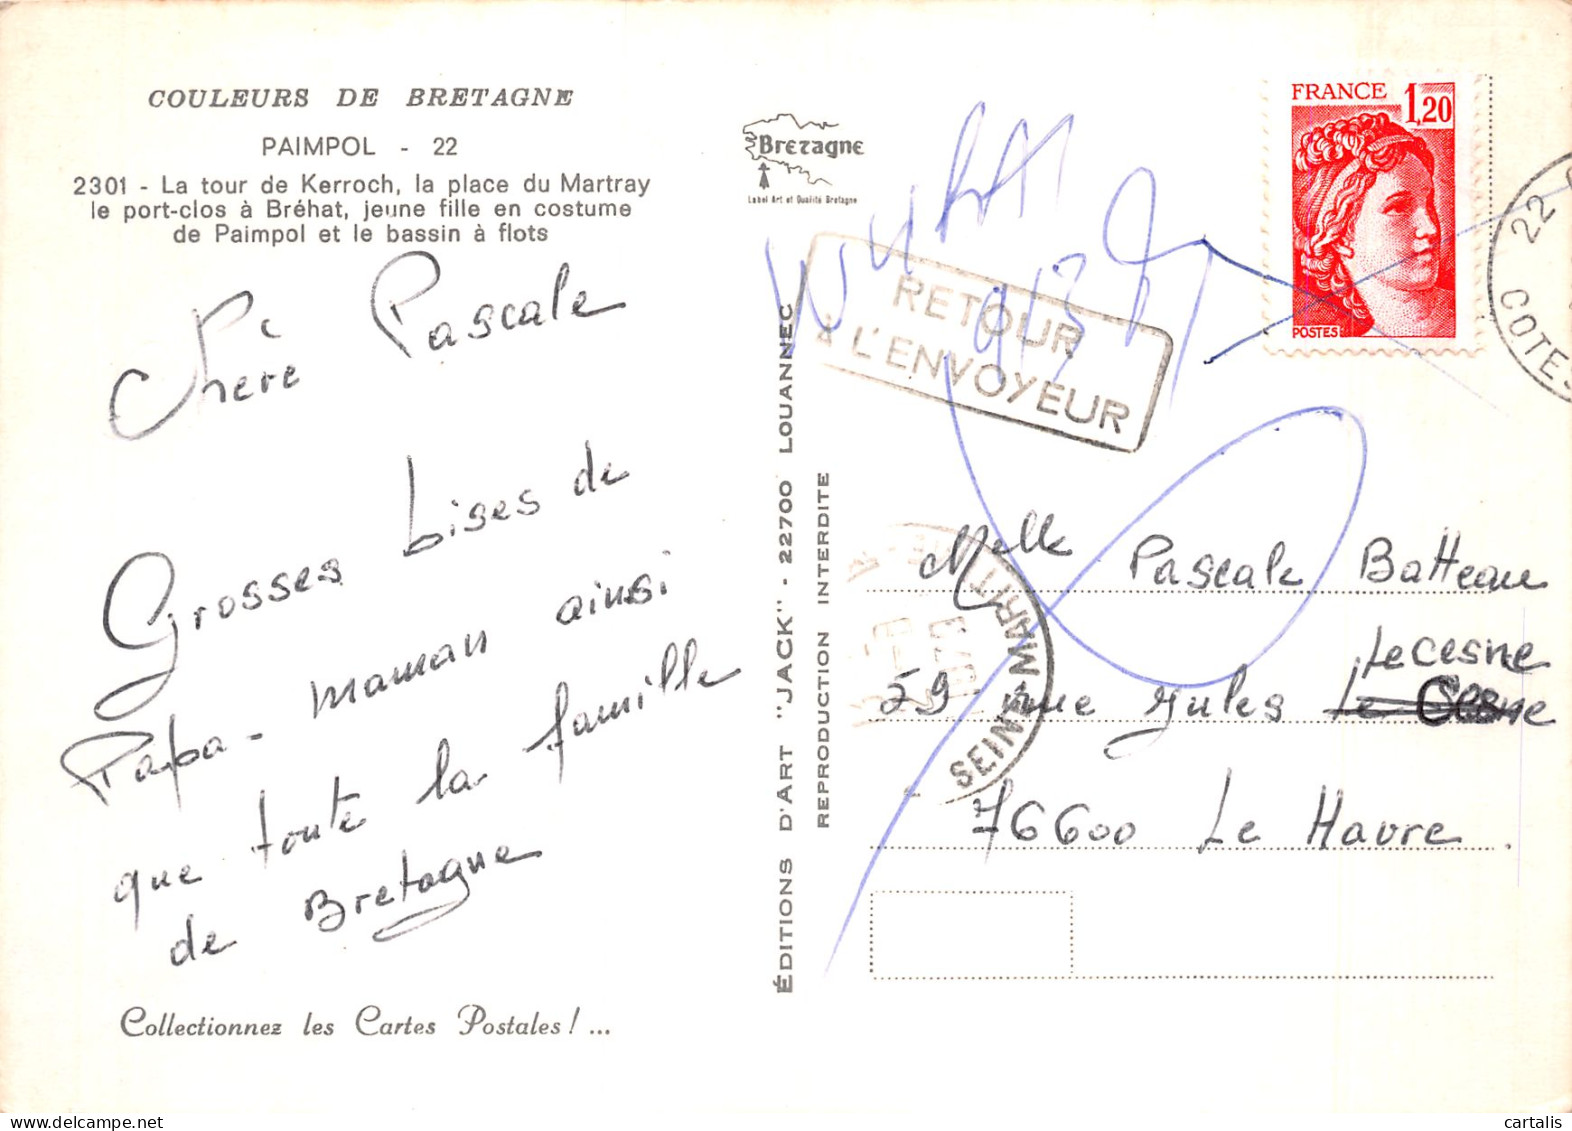 COULEURS DE BRETAGNE
PAIMPOL - 22
2301 - La tour de Kerroch, la place du Martray
le port-clos à Bréhat, jeune fille en costume
de Paimpol et le bassin à flots
Chère Pascale
Grosses bises de
Papa - maman ainsi
que toute la famille
de Bretagne
Collectionnez les Cartes Postales ! ...
Bretagne
Label Art et Qualité Bretagne
ÉDITIONS D'ART "JACK" - 22700 LOUANNEC
REPRODUCTION INTERDITE
RETOUR
à L'ENVOYEUR
FRANCE 1,20
POSTES
22
COTES
SEINE-MARITIME
Melle Pascale Batteau
Lecesne
59 rue Jules Le Cesne
76600 Le Havre.
cartalis